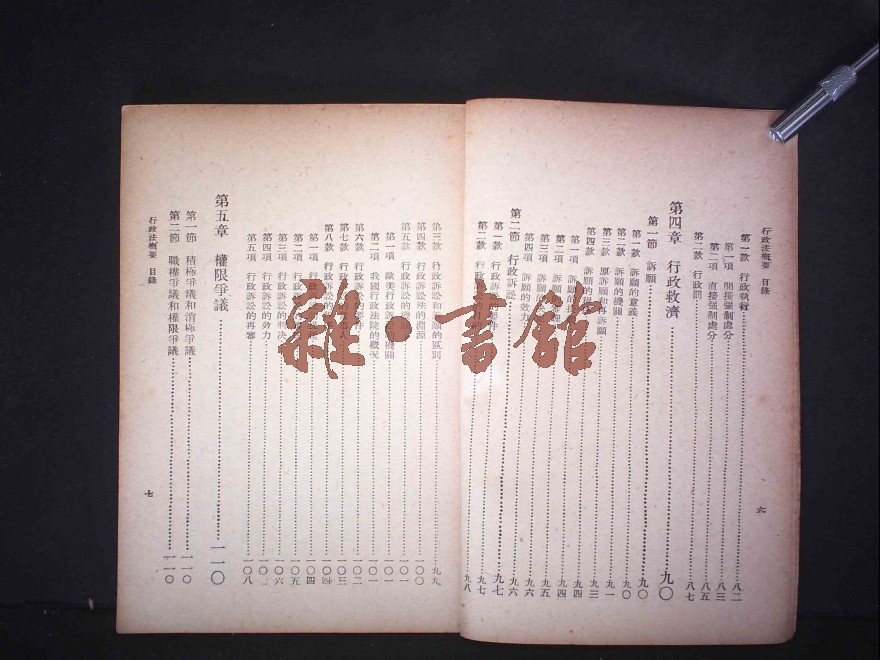 行政法概要 目錄
第一款 行政執行 八二
第一項 間接强制處分 八三
第二項 直接强制處分 八五
第二款 行政罰 八七
第四章 行政救濟 九〇
第一節 訴願 九〇
第一款 訴願的意義 九〇
第二款 訴願的機關 九〇
第三款 原訴願和再訴願 九一
第四款 訴願的提 九三
第一項 訴願的 九四
第二項 訴願的 九四
第三項 訴願的 九五
第四項 訴願的效力 九六
第二節 行政訴訟 九六
第一款 行政訴訟 要件 九七
第二款 行政訴訟 九七
九八
六
第三款 行政訴訟和訴願的區別 九九
第四款 行政訴訟法的淵源 一〇〇
第五款 行政訴訟的機關 一〇一
第一項 歐美行政訴訟機關 一〇一
第二項 我國行政法院的概況 一〇一
第六款 行政訴訟的要件 一〇二
第七款 行政訴訟 人 一〇三
第八款 行政訴訟的 一〇四
第一項 行政訴訟 一〇四
第二項 行政訴訟 一〇五
第三項 行政訴訟的判决 一〇六
第四項 行政訴訟的效力 一〇
第五項 行政訴訟的再審 一〇八
第五章 權限爭議 一一〇
第一節 積極爭議和消極爭議 一一〇
第二節 職權爭議和權限爭議 一一〇
行政法概要 目錄
七
雜·書館